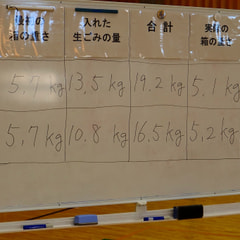 箱の重さ
入れた
生ごみの量
合計
実際の
箱の重さ
5.7 kg 13.5 kg 19.2 kg 5.1 kg
5.7 kg 10.8 kg 16.5 kg 5.2 kg